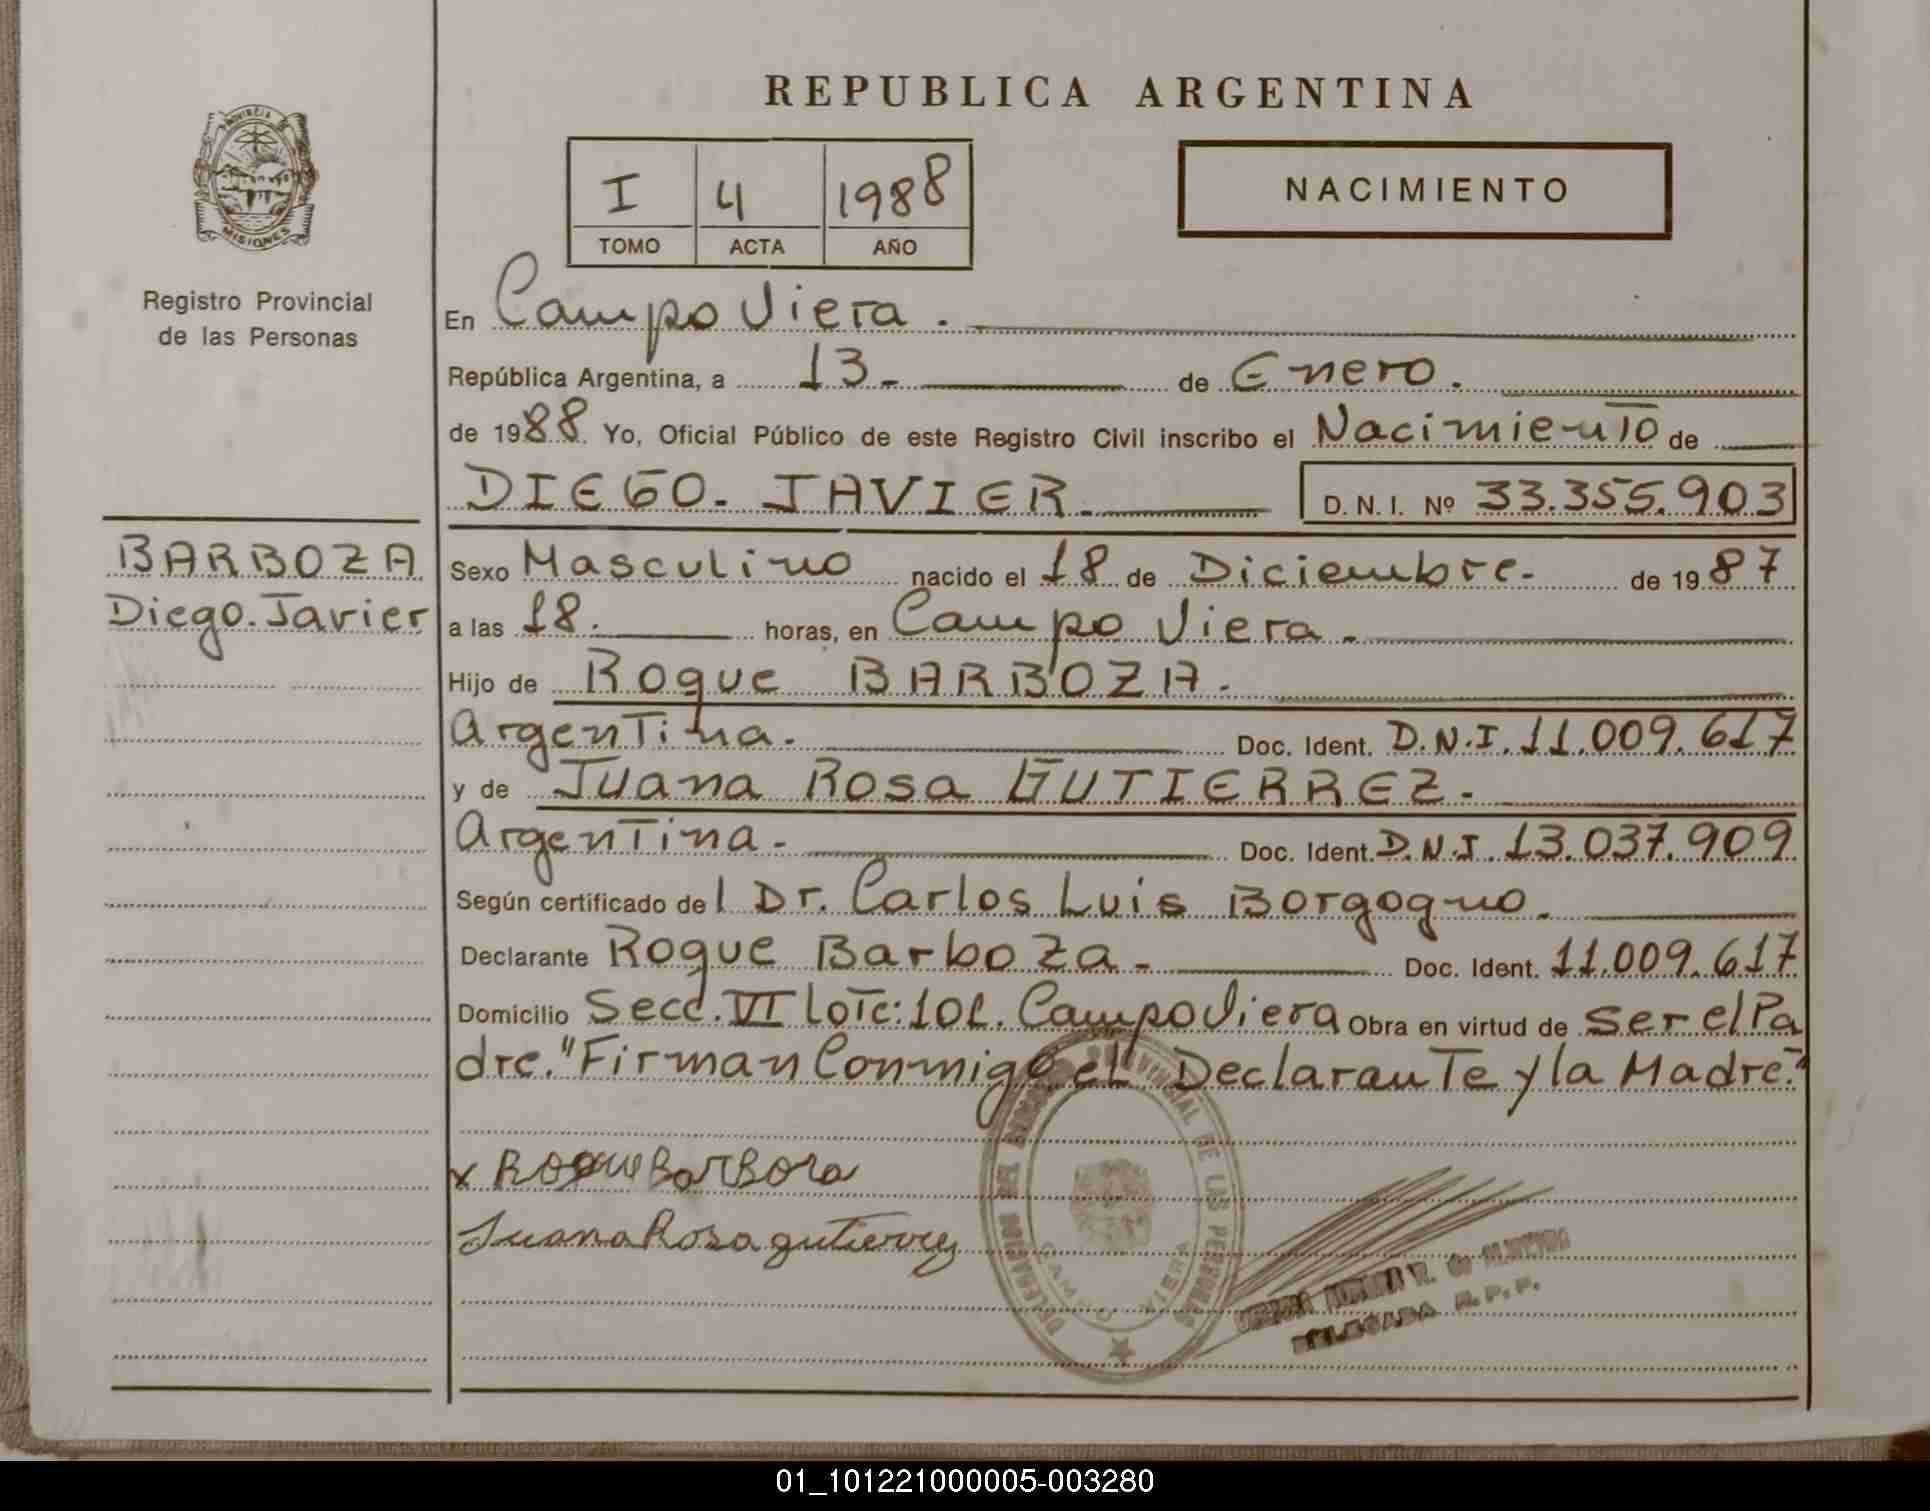 REPUBLICA ARGENTINA
PROVINCIA DE
MISIONES
Registro Provincial
de las Personas
I 4 1988
TOMO ACTA AÑO
NACIMIENTO
En Campo Viera.
República Argentina, a 13. de Enero.
de 1988. Yo, Oficial Público de este Registro Civil inscribo el Nacimiento de
DIEGO. JAVIER. D. N. I. Nº 33.355.903
BARBOZA
Diego. Javier
Sexo Masculino nacido el 18 de Diciembre. de 1987
a las 18. horas, en Campo Viera.
Hijo de Roque BARBOZA.
Argentina. Doc. Ident. D.N.I. 11.009.617
y de Juana Rosa GUTIERREZ.
Argentina. Doc. Ident. D.N.I. 13.037.909
Según certificado del Dr. Carlos Luis Borgogno.
Declarante Roque Barboza. Doc. Ident. 11.009.617
Domicilio Secc. VI Lote: 101. Campo Viera Obra en virtud de ser el Pa
dre. "Firman Conmigo el Declarante y la Madre."
x Roque Barboza
Juana Rosa gutierrez
DELEGACION REGISTRO PROVINCIAL DE LAS PERSONAS
CAMPO VIERA
DELEGADA R.P.P.
01_101221000005-003280